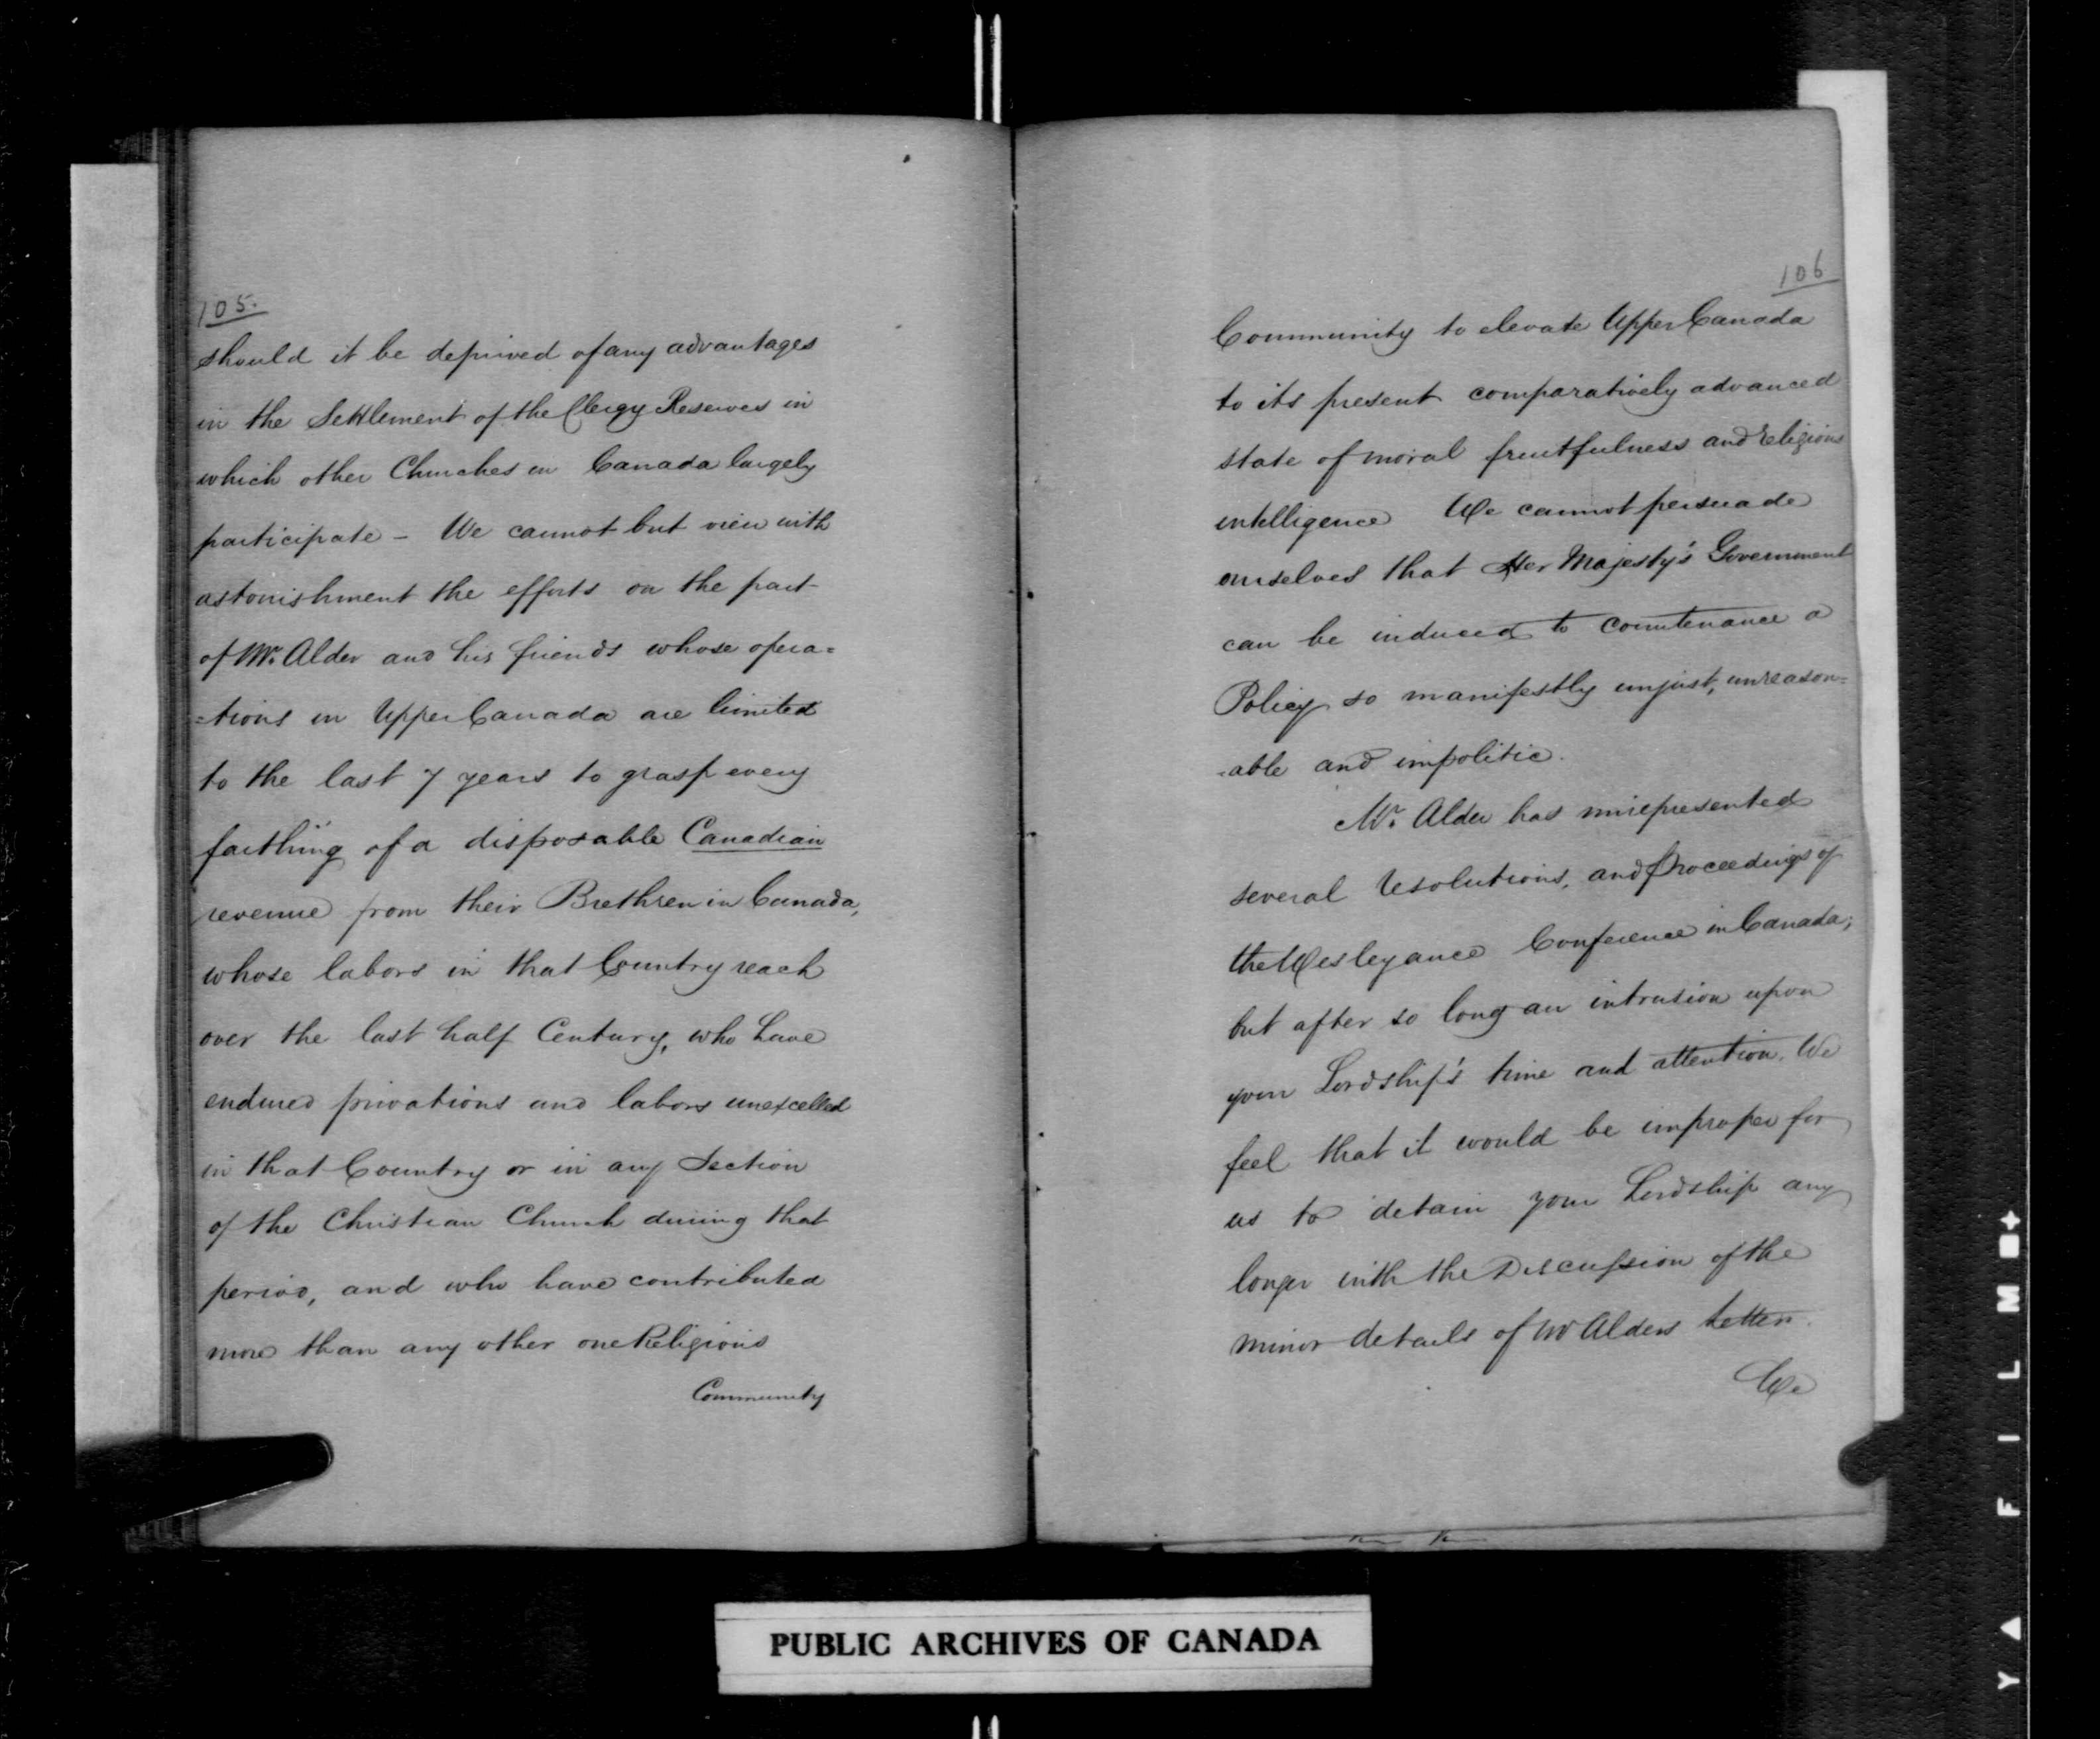 105.
should it be deprived of any advantages
in the Settlement of the Clergy Reserves in
which other Churches in Canada largely
participate – We cannot but view with
astonishment the efforts on the part
of Mr. Alder and his friends whose opera=
=tions in Upper Canada are limited
to the last 7 years to grasp every
farthing of a disposable Canadian
revenue from their Brethren in Canada,
whose labors in that Country reach
over the last half Century, who have
endured privations and labors unexcelled
in that Country or in any Section
of the Christian Church during that
period, and who have contributed
more than any other one Religious
Community
106
Community to elevate Upper Canada
to its present comparatively advanced
state of moral fruitfulness and religious
intelligence We cannot persuade
ourselves that Her Majesty's Government
can be induced to countenance a
Policy so manifestly unjust, unreason=
=able and impolitic.
Mr. Alder has misrepresented
several resolutions, and proceedings of
the Wesleyance Conference in Canada;
but after so long an intrusion upon
your Lordship's time and attention, We
feel that it would be improper for
us to detain your Lordship any
longer with the Discussion of the
minor details of Mr Alders Letters.
We
PUBLIC ARCHIVES OF CANADA